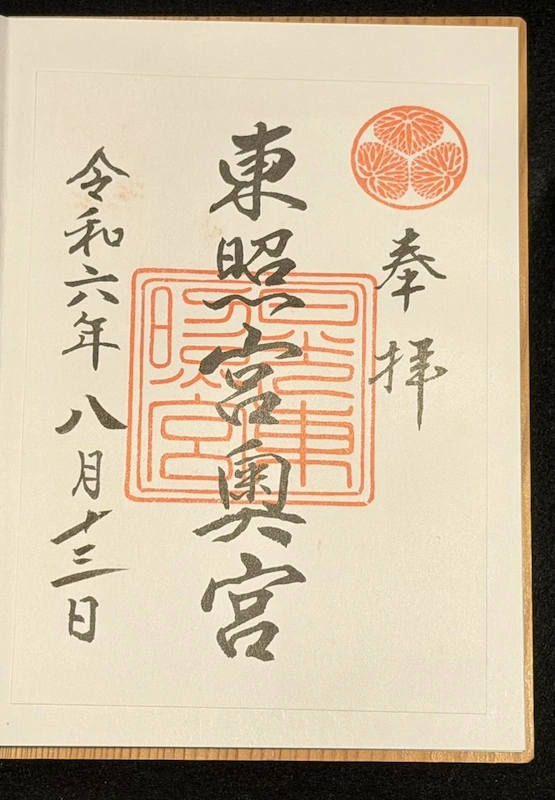 奉拝
東照宮奥宮
日光東
照宮
令和六年八月十三日